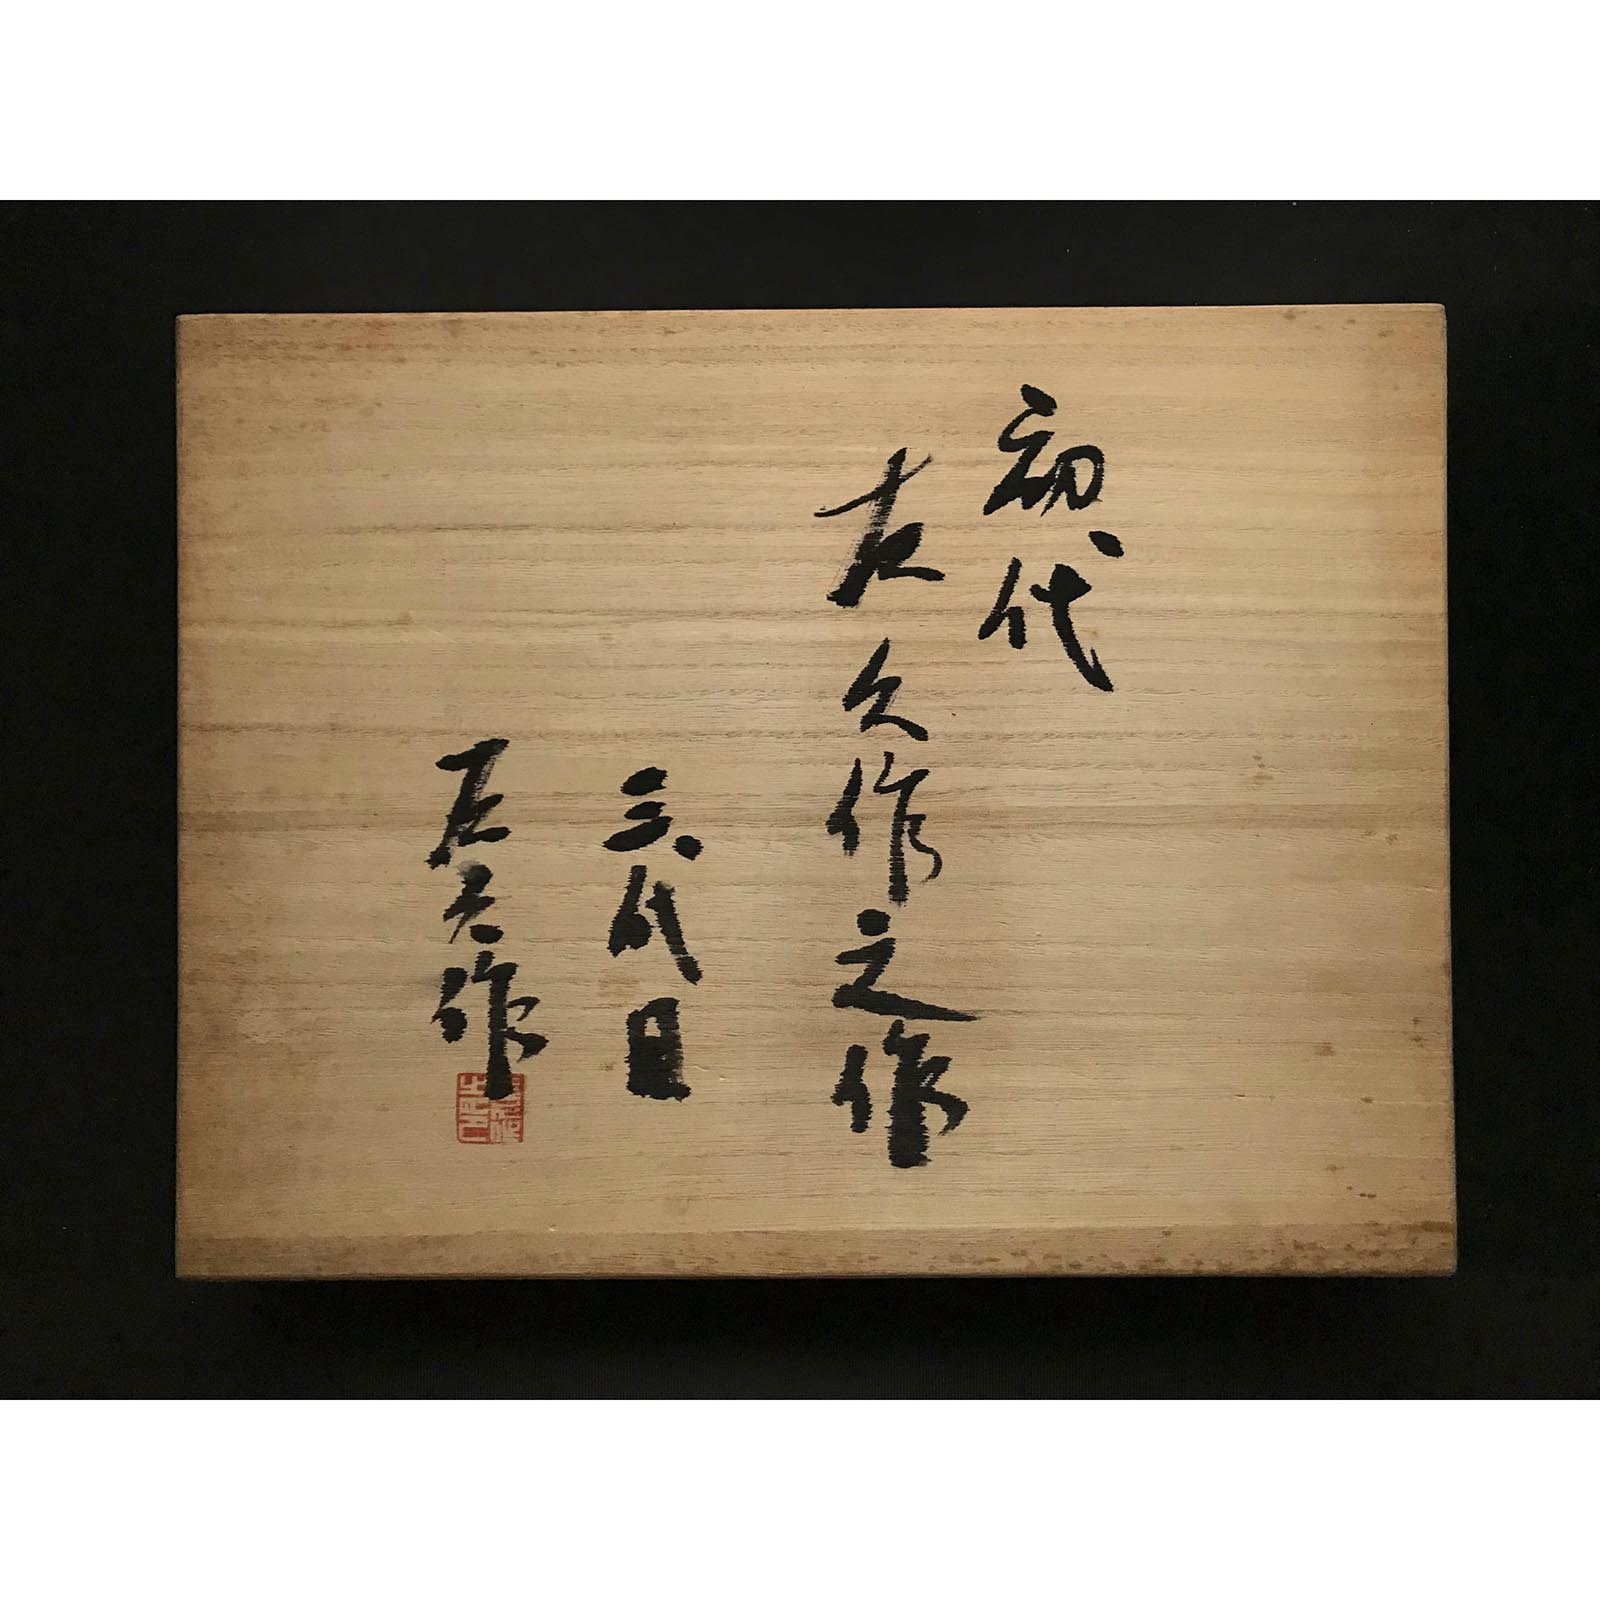 初代
友久作之作
三代目
友久作